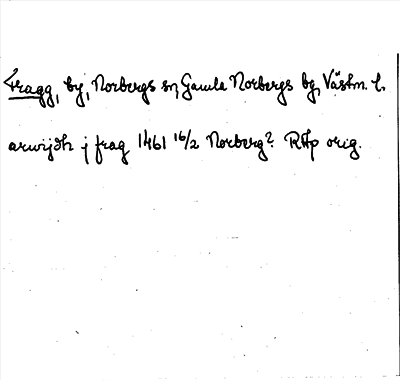 Fragg, by, Norbergs sn, Gamla Norbergs bg, Västm. l.
arwijdh j frag 1461 16/2 Norberg? RAp orig.